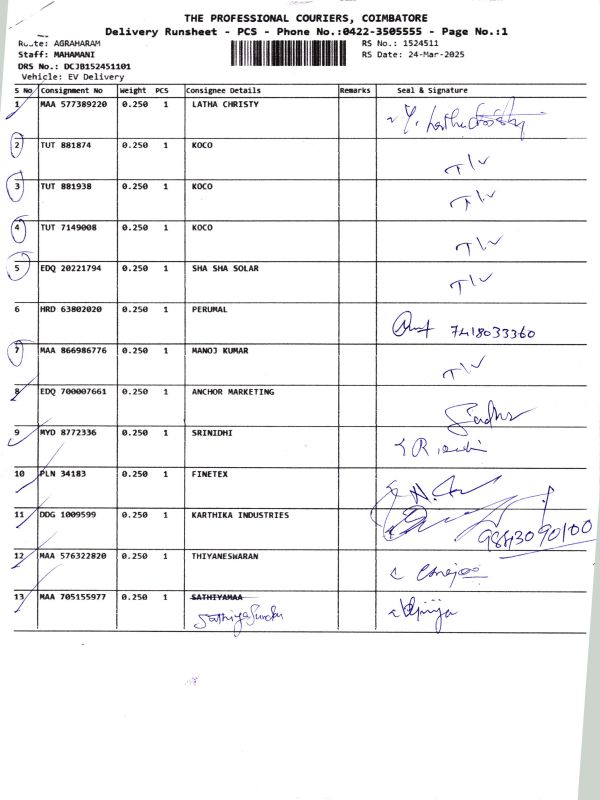 THE PROFESSIONAL COURIERS, COIMBATORE
Delivery Runsheet - PCS - Phone No.:0422-3505555 - Page No.:1
Route: AGRAHARAM
RS No.: 1524511
Staff: MAHAMANI
RS Date: 24-Mar-2025
DRS No.: DCJB152451101
Vehicle: EV Delivery
S No Consignment No Weight PCS Consignee Details Remarks Seal & Signature
1 MAA 577389220 0.250 1 LATHA CHRISTY
2 TUT 881874 0.250 1 KOCO
3 TUT 881938 0.250 1 KOCO
4 TUT 7149008 0.250 1 KOCO
5 EDQ 20221794 0.250 1 SHA SHA SOLAR
6 HRD 63802020 0.250 1 PERUMAL
7418033360
7 MAA 866986776 0.250 1 MANOJ KUMAR
8 EDQ 700007661 0.250 1 ANCHOR MARKETING
9 MYD 8772336 0.250 1 SRINIDHI
10 PLN 34183 0.250 1 FINETEX
11 DDG 1009599 0.250 1 KARTHIKA INDUSTRIES
9843090100
12 MAA 576322820 0.250 1 THIYANESWARAN
13 MAA 705155977 0.250 1 SATHIYAMAA